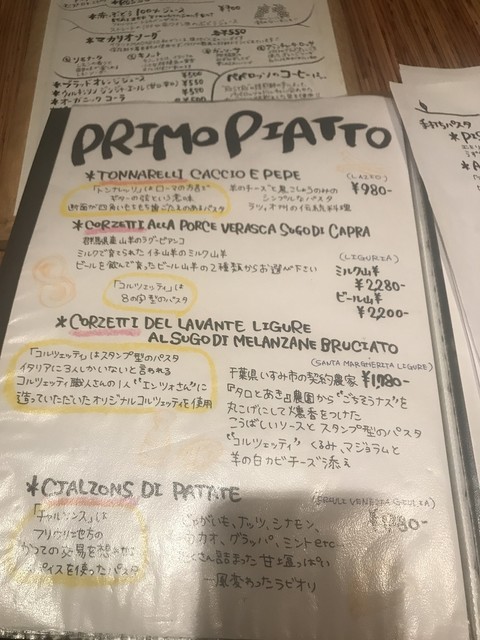 ¥900
*マカリオソーダ ¥550
*ブラッドオレンジジュース ¥500
¥550
*オーガニックコーラ
ペペロッソのコーヒーは、
PRIMO PIATTO
*TONNARELLI CACCIO E PEPE (LAZIO)
¥980-
「トンナレッリ」はローマの方言で
ギターの弦という意味
断面が四角いもちもち歯ごたえのあるパスタ
羊のチーズと黒こしょうのみの
シンプルなパスタ
ラツィオ州の伝統料理
*CORZETTI ALLA PORCE VERASCA SUGO DI CAPRA
(LIGURIA)
群馬県産山羊のラグービアンコ
ミルクで育てられた仔山羊のミルク山羊
ビールを飲んで育ったビール山羊の2種類からお選び下さい
ミルク山羊
¥2,280-
ビール山羊
¥2,200-
「コルツェッティ」は
8の字型のパスタ
*CORZETTI DEL LAVANTE LIGURE
AL SUGO DI MELANZANE BRUCIATO
(SANTA MARGHERITA LIGURE)
「コルツェッティ」はスタンプ型のパスタ
イタリアに3人しかいないと言われる
コルツェッティ職人さんの1人"エンツォさん"に
造っていただいたオリジナルコルツェッティを使用
千葉県いすみ市の契約農家 ¥1,780-
『タロとあき』農園から"ごちそうナス"を
丸こげにして燻香をつけた
こうばしいソースとスタンプ型のパスタ
"コルツェッティ" くるみ、マジョラムと
羊の白カビチーズ添え
*CJALZONS DI PATATE
(FRIULI VENEZIA GIULIA)
「チャルソンス」は
フリウリ地方の
かつての交易を想わせる
スパイスを使ったパスタ
じゃがいも、ナッツ、シナモン、
カカオ、グラッパ、ミントetc...
たくさん詰まった甘塩っぱい
一風変わったラビオリ
手打ちパスタ